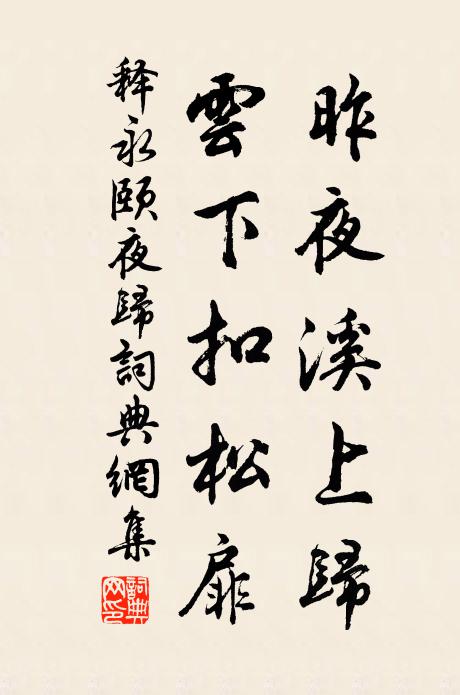 昨夜溪上歸
雲下扣松扉
释永頤夜歸詞典網集
詞典网印